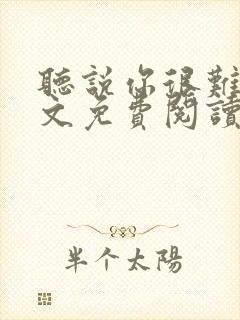 聽說你很難
文免費閱讀
半个太陽